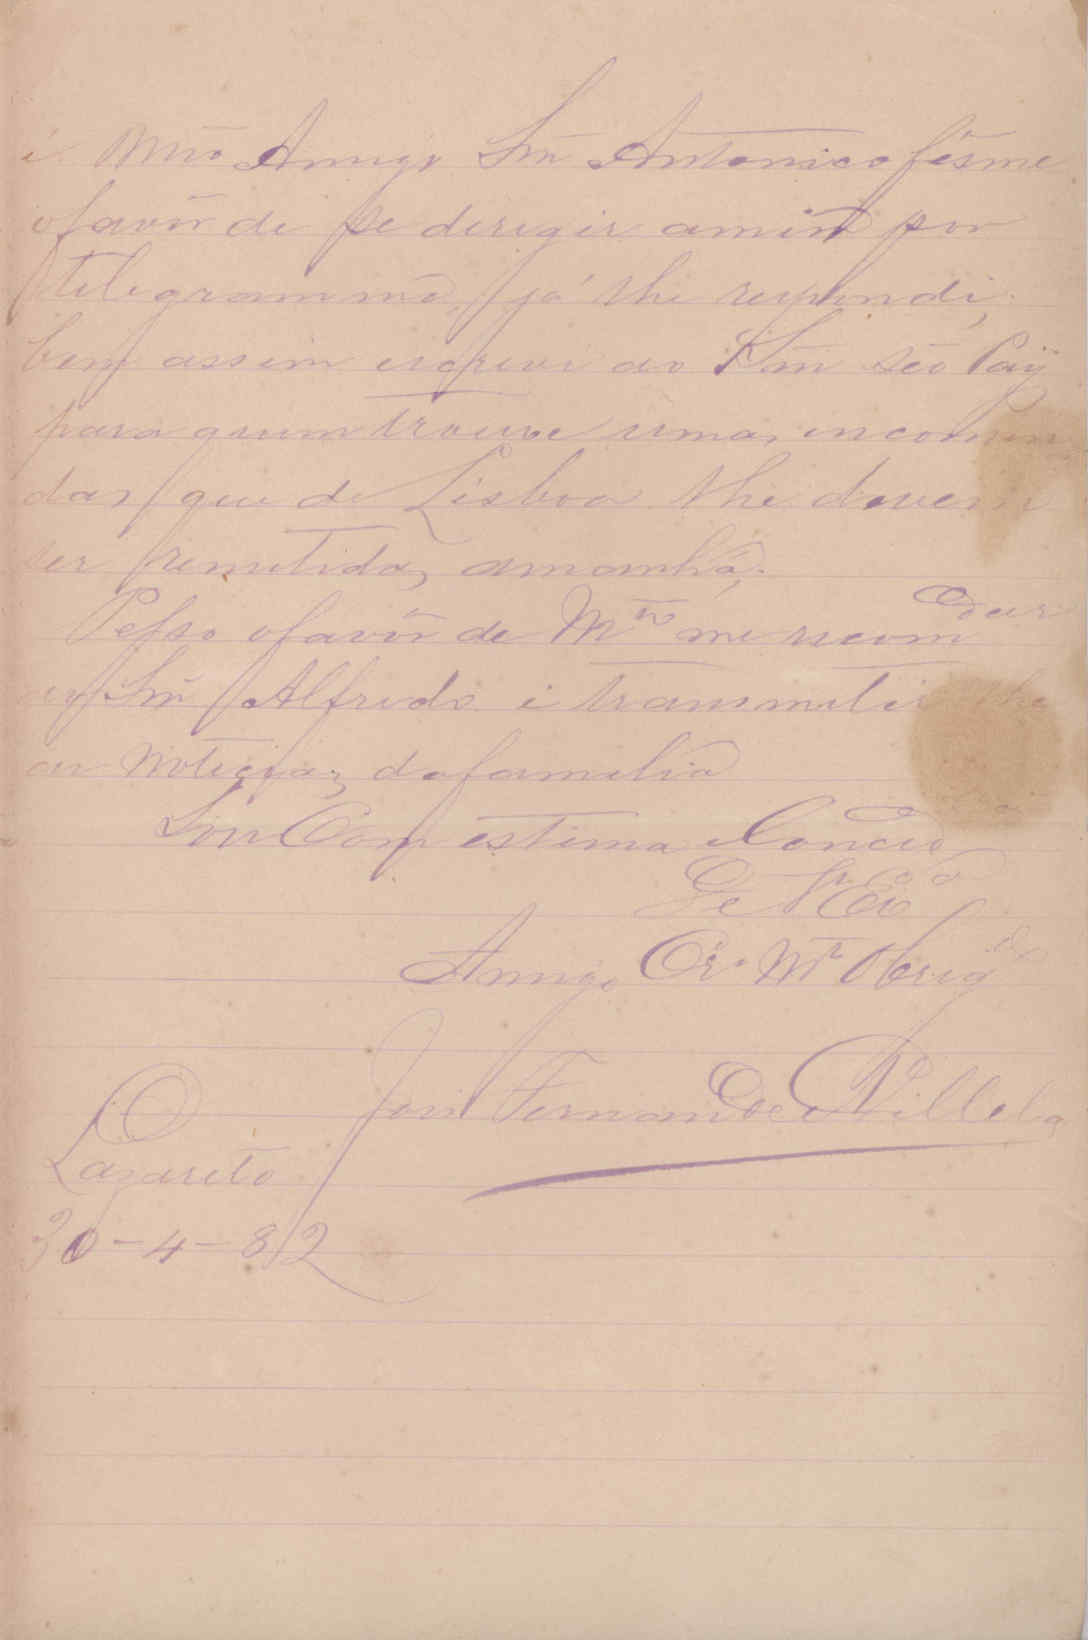 i Mr̃o Amigo Snr̃ Antonico fêsme
o favôr de se deregir amim por
telegramma, já lhe respondi,
bem assim escrevi ao Snr̃ Seo Paÿ
para quem trouxe umas incomen
das que de Lisboa lhe devem
ser remetidas, amanhã.
Pesso o favôr de Mto me recom dar
ao Snr̃ Alfredo i transmetir lhe
as Noticias da familia
Sou Com estima
De V Exa
Amigo Cro Mto Obrigdo
José Fernandes Villela
Lazareto
30-4-82